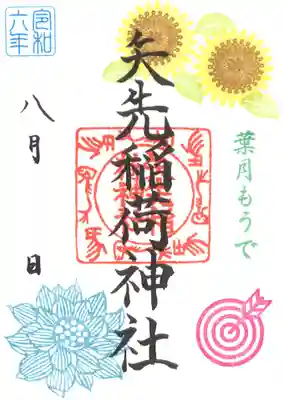 令和
六年
葉月もうで
矢先稲荷神社
八月 日